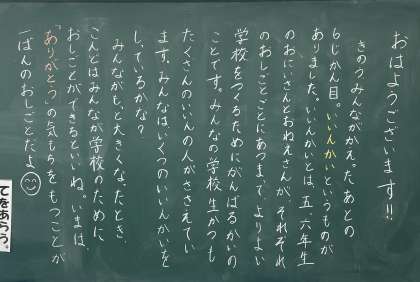 おはようございます!!
きのうみんながかえった、あとの
6じかん目。いいんかいというものが
ありました。いいんかいとは、五、六年生
のおにいさんとおねえさんが、それぞれ
のおしごとごとにあつまって、よりよい
学校をつくるためにがんばるかいの
ことです。みんなの学校生かつも
たくさんのいいんの人がささえてい
ます。みんなはいくつのいいんかいを
しっているかな?
みんながもっと大きくなったとき、
こんどはみんなが学校のために
おしごとができるといいね。いまは、
「ありがとう」の気もちをもつことが
一ばんのおしごとだよ
てをあらう。